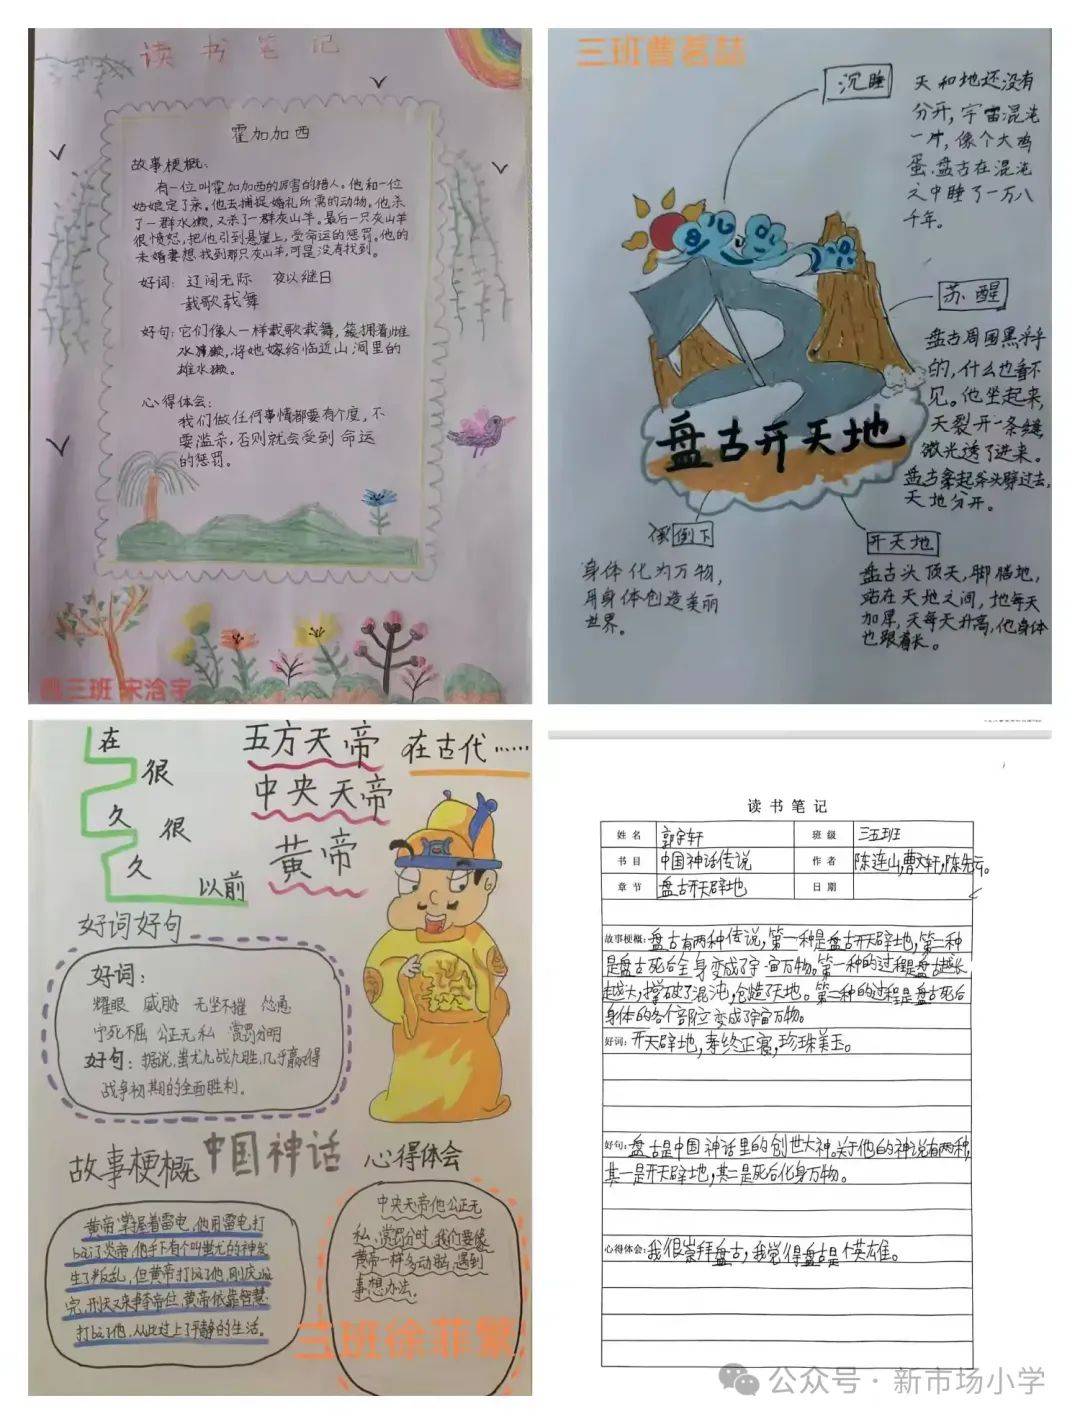 读书笔记
霍加加西
故事梗概:
有一位叫霍加加西的厉害的猎人。他和一位
姑娘定了亲。他去捕捉婚礼所需的动物。他杀
了一群水獭,又杀了一群灰山羊。最后一只灰山羊
很愤怒,把他引到悬崖上,受命运的惩罚。他的
未婚妻想找到那只灰山羊,可是没有找到。
好词: 辽阔无际 夜以继日
载歌载舞
好句:它们像人一样载歌载舞,簇拥着雌
水獭,将她嫁给临近山洞里的
雄水獭。
心得体会:
我们做任何事情都要有个度,不
要滥杀,否则就会受到命运
的惩罚。
三班 宋洽宇
三班曹茗喆
沉睡
天和地还没有
分开,宇宙混沌
一片,像个大鸡
蛋,盘古在混沌
之中睡了一万八
千年。
苏醒
盘古周围黑乎乎
的,什么也看不
见。他坐起来,
天裂开一条缝,
微光透了进来。
盘古拿起斧头劈过去,
天地分开。
盘古开天地
倒下
身体化为万物,
用身体创造美丽
世界。
开天地
盘古头顶天,脚踏地,
站在天地之间,地每天
加厚,天每天升高,他身体
也跟着长。
在
很
久
很
久
以前
五方天帝
中央天帝
黄帝
在古代……
好词好句
好词:
耀眼 威胁 无坚不摧 怂恿
宁死不屈 公正无私 赏罚分明
好句:据说,蚩尤九战九胜,几乎赢得
战争初期的全面胜利。
故事梗概
中国神话
心得体会
黄帝掌握着雷电,他用雷电打
bài了炎帝,他手下有个叫蚩尤的神发
生了叛乱,但黄帝打bài了他,刚庆zhù
完,刑天又来争夺帝位,黄帝依靠智慧
打bài了他,从此过上了平静的生活。
中央天帝他公正无
私、赏罚分明,我们要像
黄帝一样多动脑,遇到
事想办法。
三班徐菲繁
读书笔记
姓名 郭宇轩 班级 三五班
书目 中国神话传说 作者 陈连山,曹文轩,陈先云。
章节 盘古开天辟地 日期
故事梗概:盘古有两种传说,第一种是盘古开天辟地,第二种
是盘古死后全身变成了宇宙万物。第一种的过程是盘古越长
越大,撑破了混沌,创造了天地。第二种的过程是盘古死后
身体的各个部位变成了宇宙万物。
好词:开天辟地,寿终正寝,珍珠美玉。
好句:盘古是中国神话里的创世大神。关于他的神说有两种,
其一是开天辟地,其二是死后化身万物。
心得体会:我很崇拜盘古,我觉得盘古是个英雄。
公众号·新市场小学